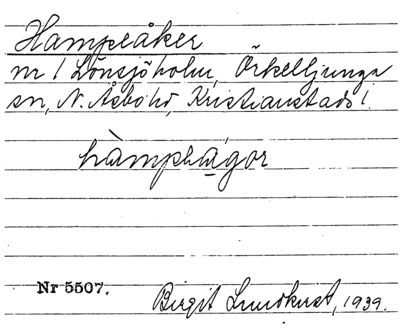 Hampeåker
nr 1 Lönsjöholm, Örkelljunga
sn, N. Åsbo hd, Kristianstads l.
hàmphágor
Nr 5507.
Birgit Lundkvist, 1939.